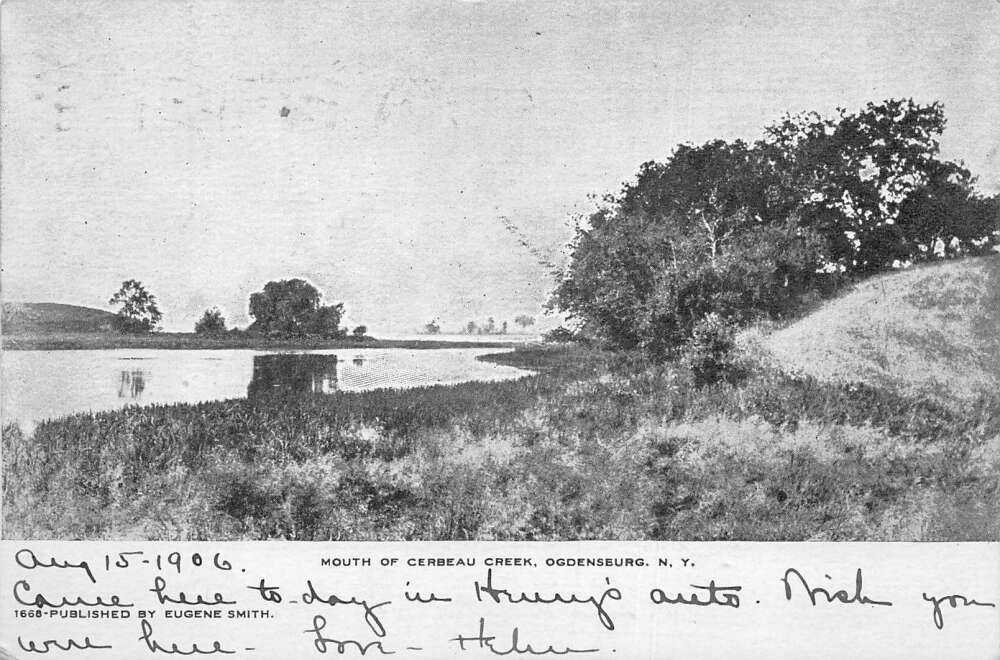 Aug 15-1906.
MOUTH OF CERBEAU CREEK, OGDENSBURG. N. Y.
Came here to-day in Henry's auto. Wish you
1668-PUBLISHED BY EUGENE SMITH.
were here - Love - Helen.